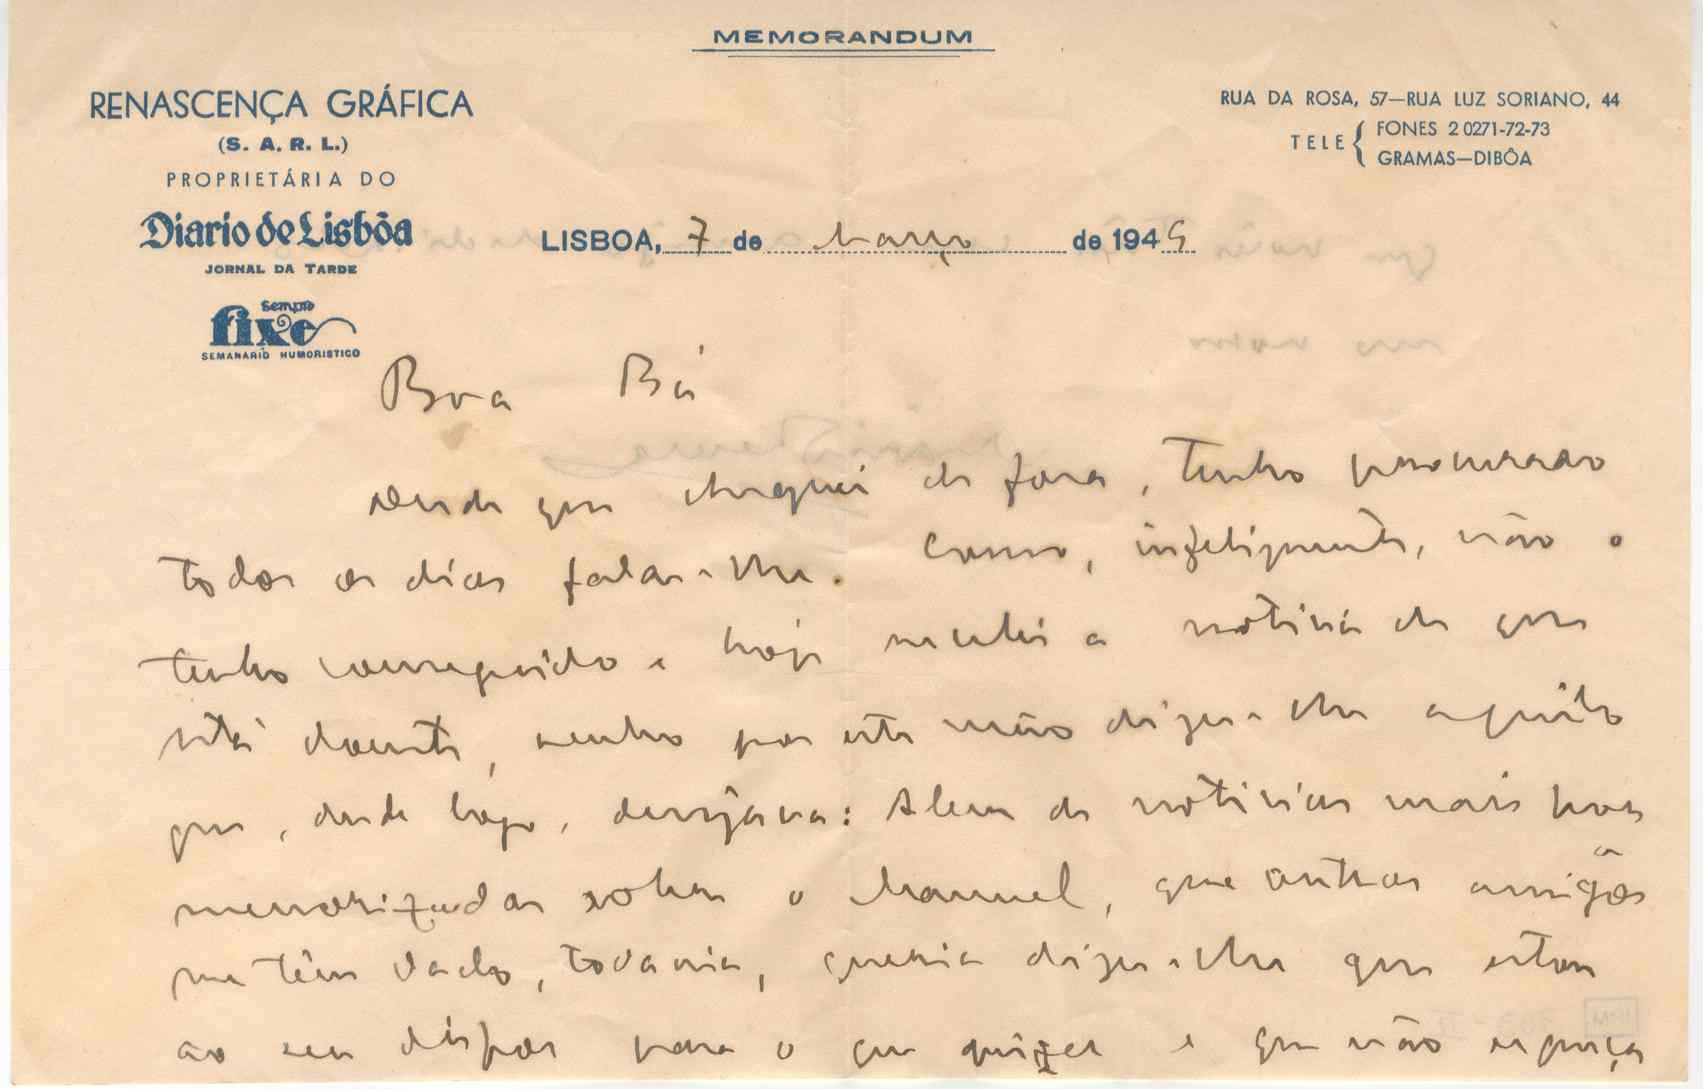 MEMORANDUM
RENASCENÇA GRÁFICA
(S. A. R. L.)
PROPRIETÁRIA DO
Diario de Lisbôa
JORNAL DA TARDE
Sempre
fixe
SEMANARIO HUMORISTICO
RUA DA ROSA, 57—RUA LUZ SORIANO, 44
TELE { FONES 2 0271-72-73
GRAMAS—DIBÔA
LISBOA, 7 de Março de 1945
Boa Bá
desde que cheguei de fora, tenho procurado
todos os dias falar-lhe. Como, infelizmente, não o
tenho conseguido e hoje recebi a notícia de que
está doente, venho por este meio dizer-lhe aquilo
que, desde logo, desejava: Alem de notícias mais por
menorizadas sobre o Manuel, que outros amigos
me têm dado, todavia, queria dizer-lhe que estou
ao seu dispor para o que quizer e que não esqueça